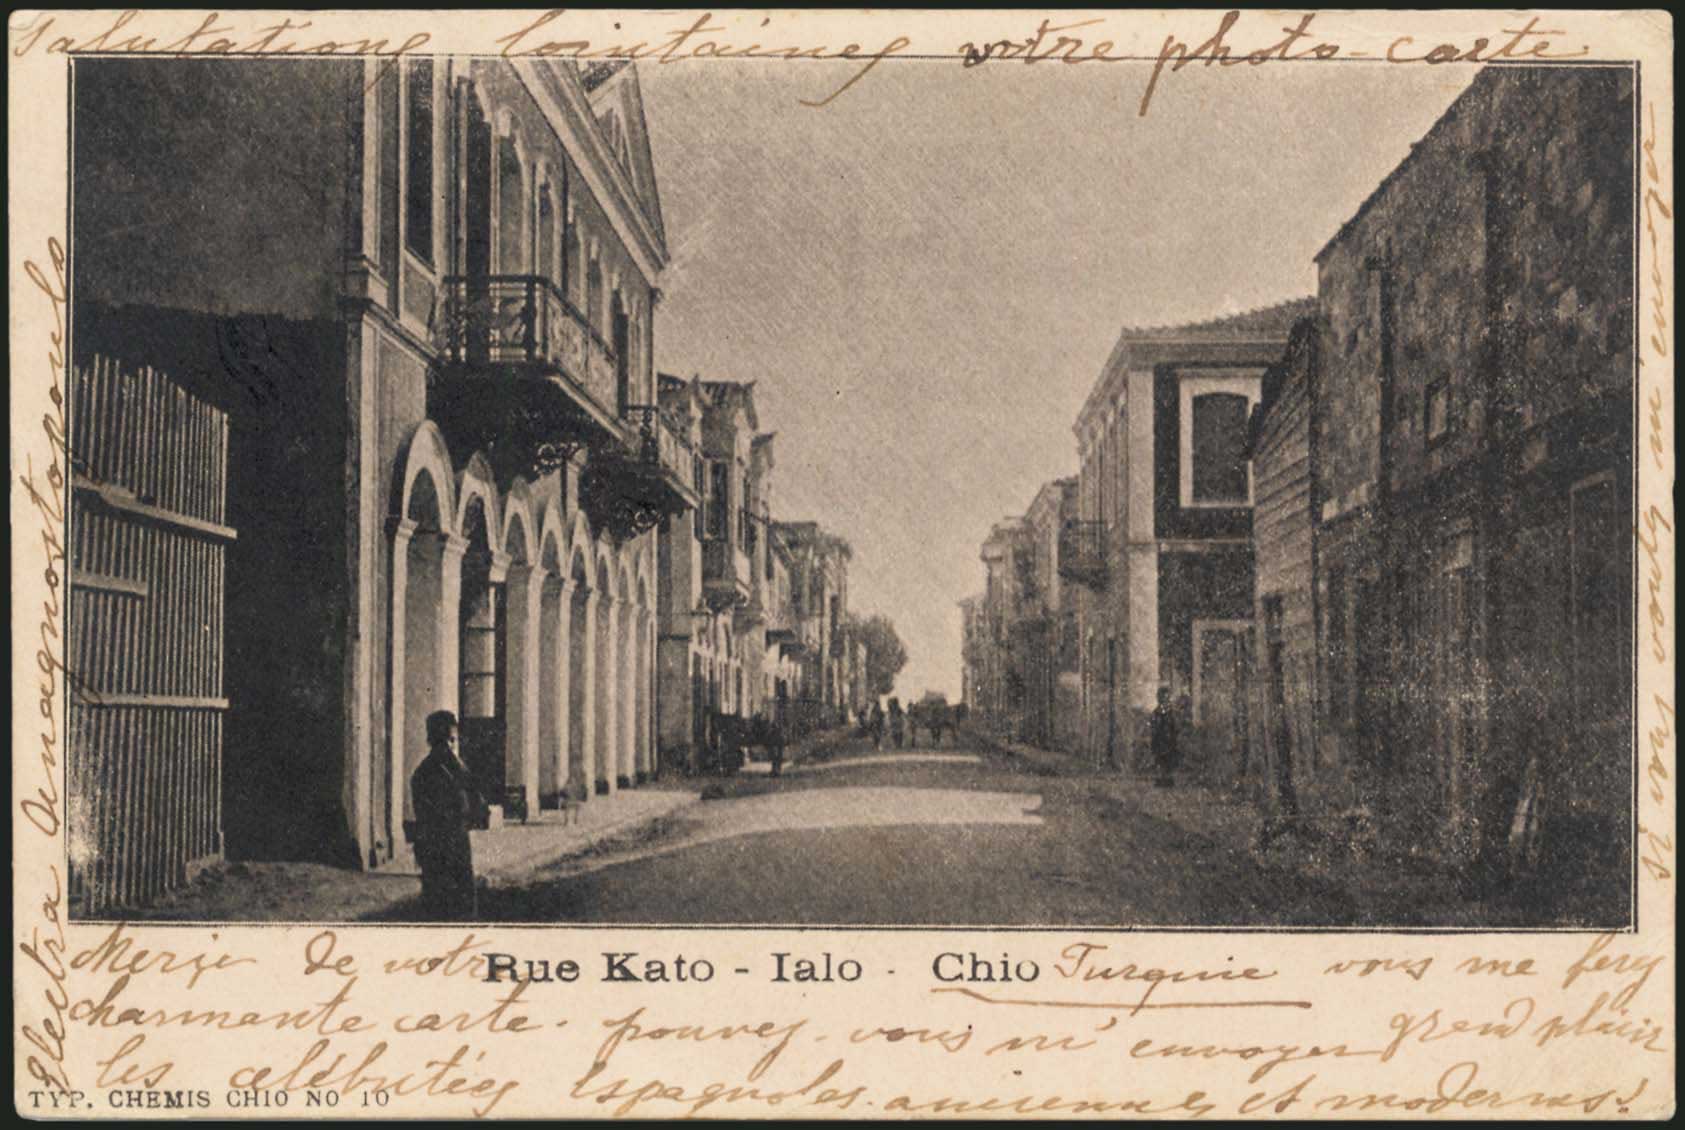 Salutations lointaines votre photo-carte
Electra Anagnostopoulo
si vous voulez m'envoyer
Merçi de votre Rue Kato - Ialo - Chio Turquie vous me ferez
charmante carte. pouvez-vous m'envoyer grand plaisir
les célébritées Espagnoles. anciennes et modernes!
TYP. CHEMIS CHIO NO 10